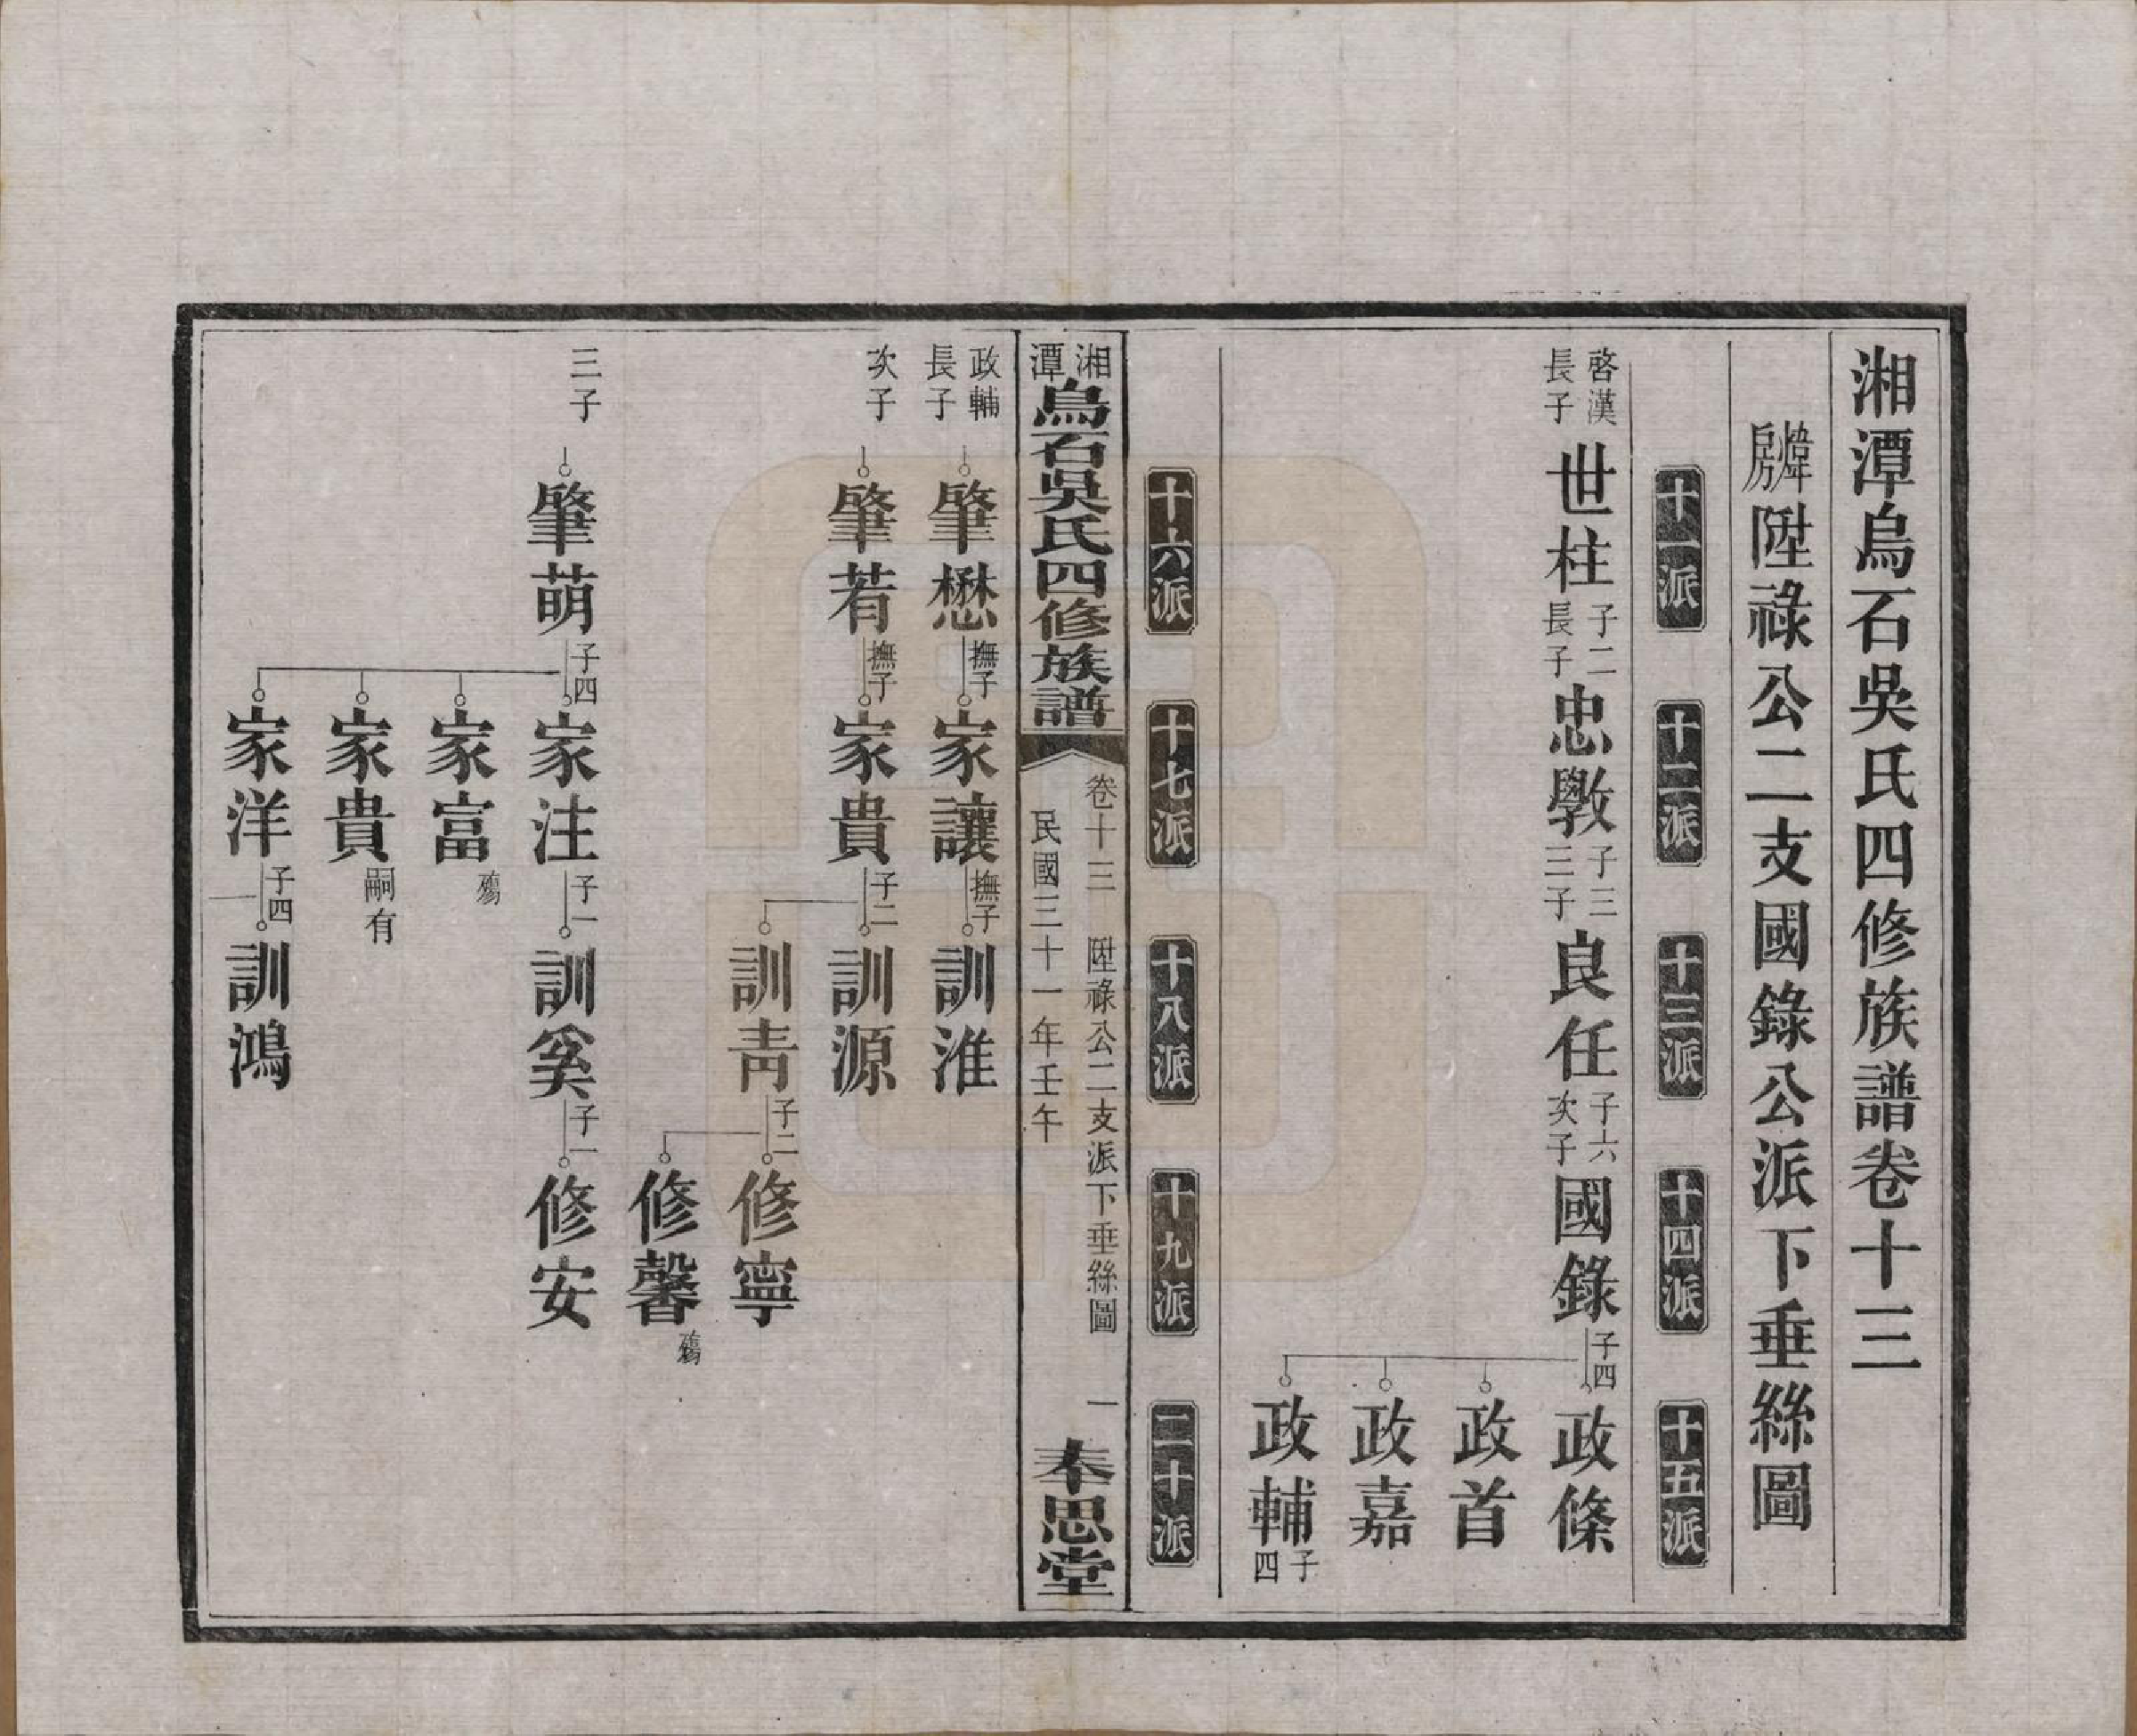 湘潭烏石吳氏四修族譜卷十三
煒房陞祿公二支國錄公派下垂絲圖
十一派 十二派 十三派 十四派 十五派
啓漢長子 世柱 子二長子 忠斅 子三三子 良任 子六次子 國錄 子四 政條
政首
政嘉
政輔 子四
十六派 十七派 十八派 十九派 二十派
湘潭烏石吳氏四修族譜 卷十三 陞祿公二支派下垂絲圖 一 奉思堂
民國三十一年壬午
政輔長子 肇懋 撫子 家讓 撫子 訓淮
次子 肇若 撫子 家貴 子二 訓源
訓青 子二 修寧
修馨 殤
三子 肇萌 子四 家注 子一 訓奚 子一 修安
家富 殤
家貴 嗣有
家洋 子四 訓鴻